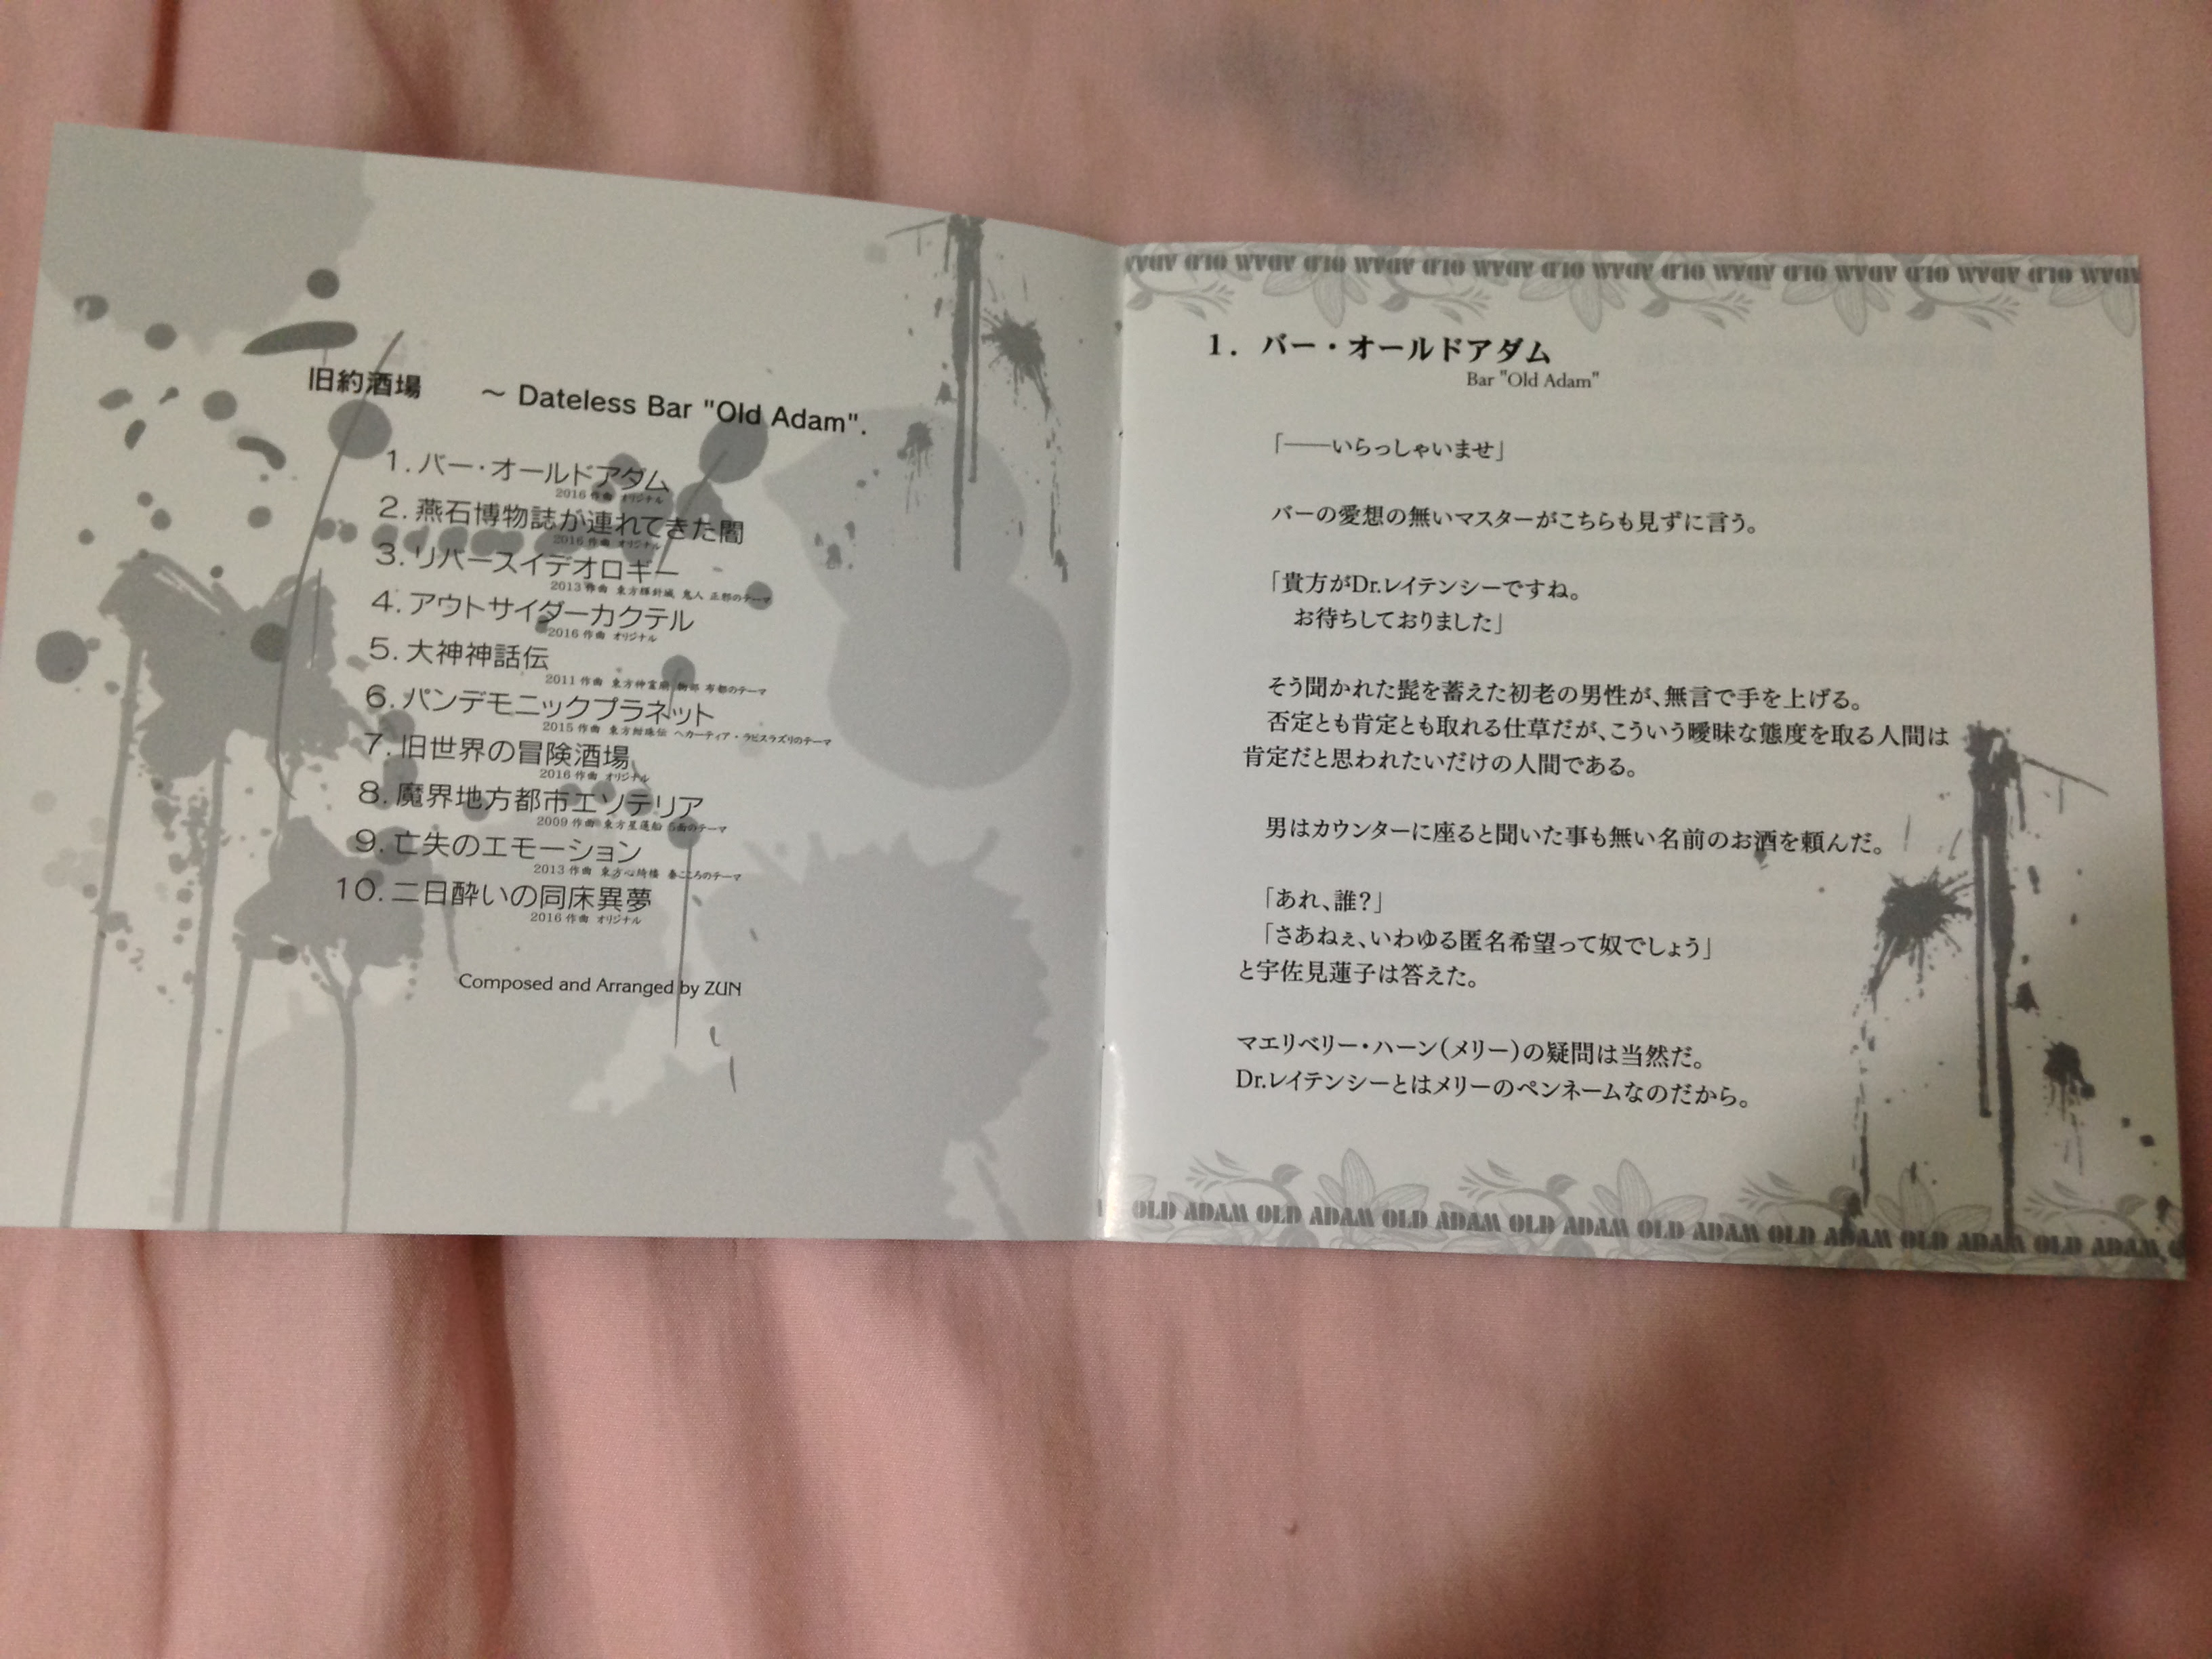 旧約酒場　～ Dateless Bar "Old Adam".
1. バー・オールドアダム
2016 作曲 オリジナル
2. 燕石博物誌が連れてきた闇
2016 作曲 オリジナル
3. リバースイデオロギー
2013 作曲 東方輝針城 鬼人 正邪のテーマ
4. アウトサイダーカクテル
2016 作曲 オリジナル
5. 大神神話伝
2011 作曲 東方神霊廟 物部 布都のテーマ
6. パンデモニックプラネット
2015 作曲 東方紺珠伝 ヘカーティア・ラピスラズリのテーマ
7. 旧世界の冒険酒場
2016 作曲 オリジナル
8. 魔界地方都市エソテリア
2009 作曲 東方星蓮船 5面のテーマ
9. 亡失のエモーション
2013 作曲 東方心綺楼 秦こころのテーマ
10. 二日酔いの同床異夢
2016 作曲 オリジナル
Composed and Arranged by ZUN
OLD ADAM OLD ADAM OLD ADAM OLD ADAM OLD ADAM OLD ADAM OLD ADAM OLD ADAM
1. バー・オールドアダム
Bar "Old Adam"
「――いらっしゃいませ」
バーの愛想の無いマスターがこちらも見ずに言う。
「貴方がDr.レイテンシーですね。
お待ちしておりました」
そう聞かれた髭を蓄えた初老の男性が、無言で手を上げる。
否定とも肯定とも取れる仕草だが、こういう曖昧な態度を取る人間は
肯定だと思われたいだけの人間である。
男はカウンターに座ると聞いた事も無い名前のお酒を頼んだ。
「あれ、誰？」
「さあねぇ、いわゆる匿名希望って奴でしょう」
と宇佐見蓮子は答えた。
マエリベリー・ハーン（メリー）の疑問は当然だ。
Dr.レイテンシーとはメリーのペンネームなのだから。
OLD ADAM OLD ADAM OLD ADAM OLD ADAM OLD ADAM OLD ADAM OLD ADAM OLD ADAM